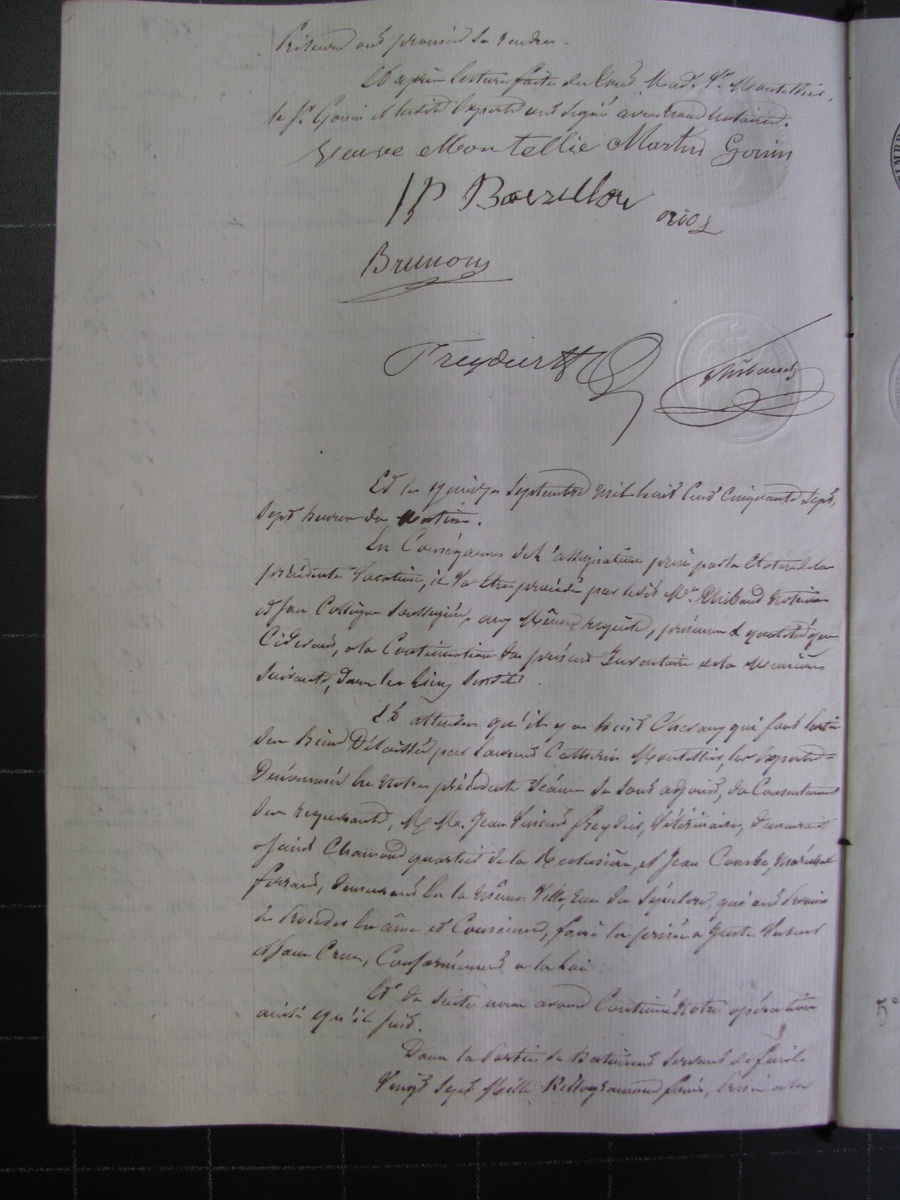 Prisees ont promis se rendre.
Et après lecture faite du tout, Mad. Ve Montellier,
le Sr Gonin et lesdits experts ont signé avec nous notaires.
Veuve Montellie Martin Gonin
JP Barzellon oriol
Brunon
Freydier Thibaud
Et le quinze Septembre mil huit cent cinquante sept,
sept heures du matin.
En Conséquence de l'assignation prise par la cloture de la
précédente vacation, il va être procédé par ledit Me Thibaud notaire
et son Collègue soussignés, aux mêmes requête, présence & qualités que
Ci dessus, à la Continuation du présent Inventaire de la manière
suivante, dans les lieux susdits.
Et attendu qu'il y a huit Chevaux qui font partie
des biens délaissés par Laurent Catherin Montellier, les experts
dénommés en notre précédente séance se sont adjoint, du Consentement
des requérants, MM. Jean Vincent Freydier, Vétérinaire, demeurant
à Saint Chamond quartier de la et Jean Combe, maréchal
ferrant, demeurant en la même Ville, rue du Sépulcre, qui ont promis
de procéder en âme et Conscience, faire la prisée à juste valeur
et sans Crue, Conformément à la loi.
Et de suite nous avons Continué notre opération
ainsi qu'il suit.
Dans la Partie de Batiment servant de fenil
Vingt sept mille Killogrammes foin, prisé à la
5°